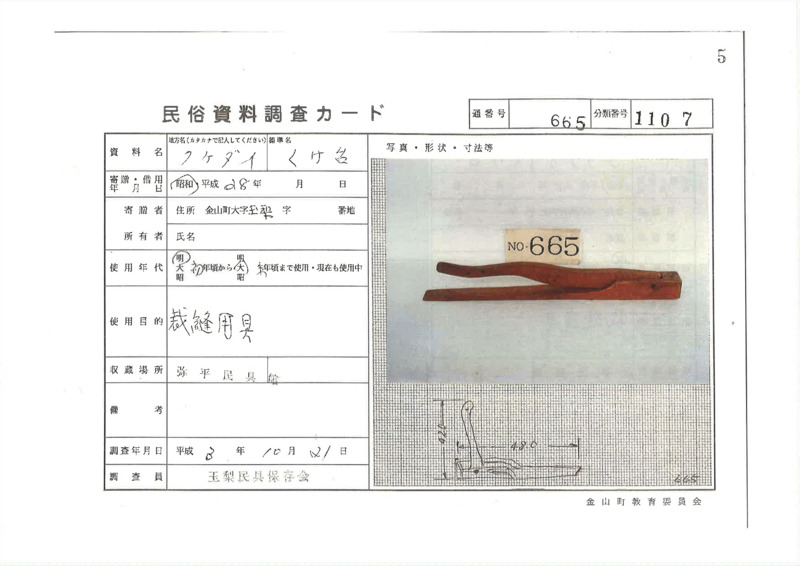 5
民俗資料調査カード
通番号 665 分類番号 1107
資料名 地方名(カタカナで記入してください) クケダイ 標準名 くけ台
寄贈・借用年月日 昭和 平成 28年 月 日
寄贈者 住所 金山町大字玉梨 字 番地
所有者 氏名
使用年代 明大昭 初年頃から 明大昭 末年頃まで使用・現在も使用中
使用目的 裁縫用具
収蔵場所 弥平民具館
備考
調査年月日 平成 3年 10月 21日
調査員 玉梨民具保存会
写真・形状・寸法等
NO.665
42.0
48.0
665
金山町教育委員会